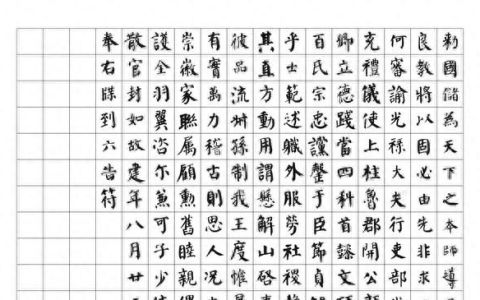 勅國儲為天下之本師導
良教將以固必由先非求
何審諭光祿大夫行吏部
充禮儀使上柱魯郡開公
卿立德踐當四科首懿文
百氏宗忠讜罄于臣節貞
乎士範述職外服勞社稷
其直方動用謂懸解山啓
彼品流孫制我王度惟
有實萬力稽古則思人况
崇徽家聯属顧勲舊睦親
護全羽翼咨尔兼可子少
散官封如故建年八月廿
奉右牒到六告符